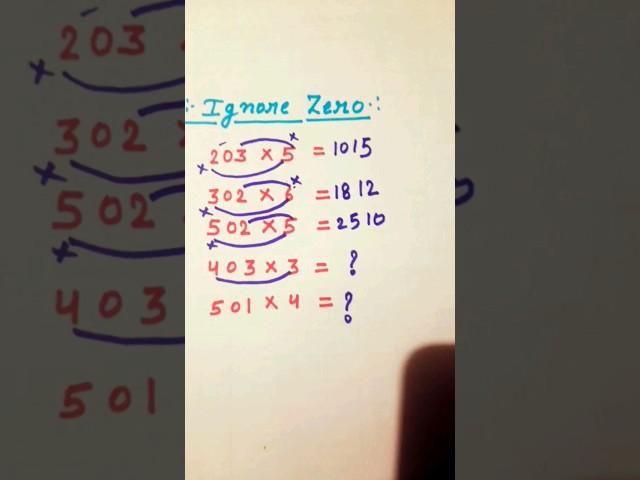 :· Ignore Zero ·:
203 × 5 = 1015
302 × 6 = 1812
502 × 5 = 2510
403 × 3 = ?
501 × 4 = ?